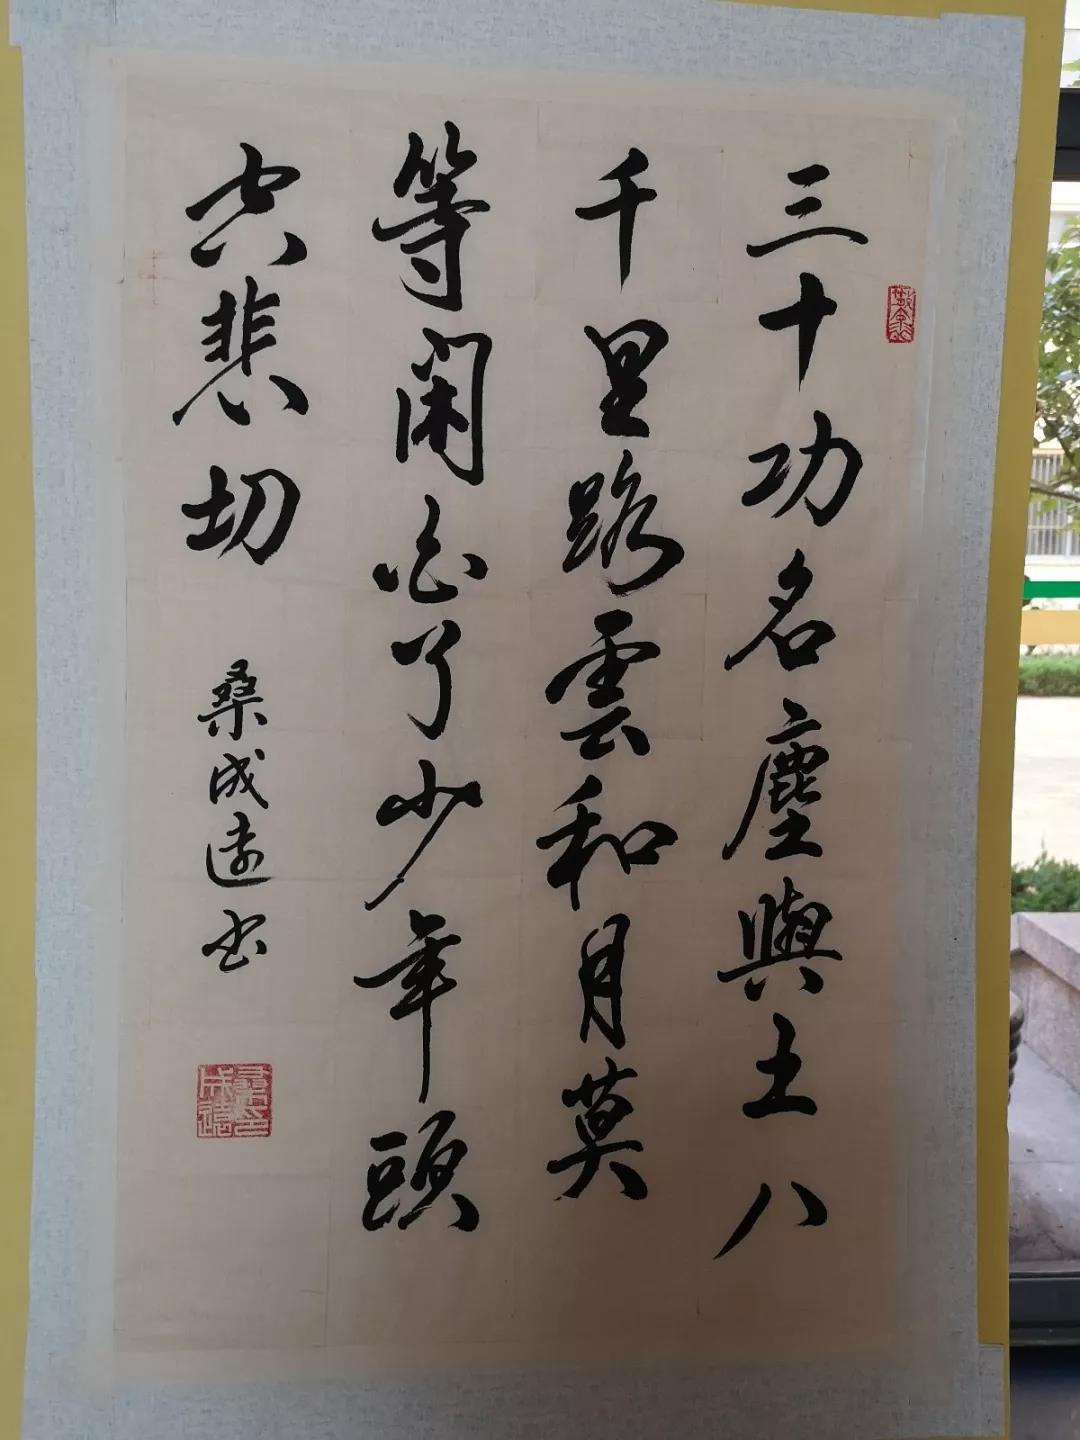 三十功名塵與土八
千里路雲和月莫
等閑白了少年頭
空悲切
桑成遠书
桑成遠印